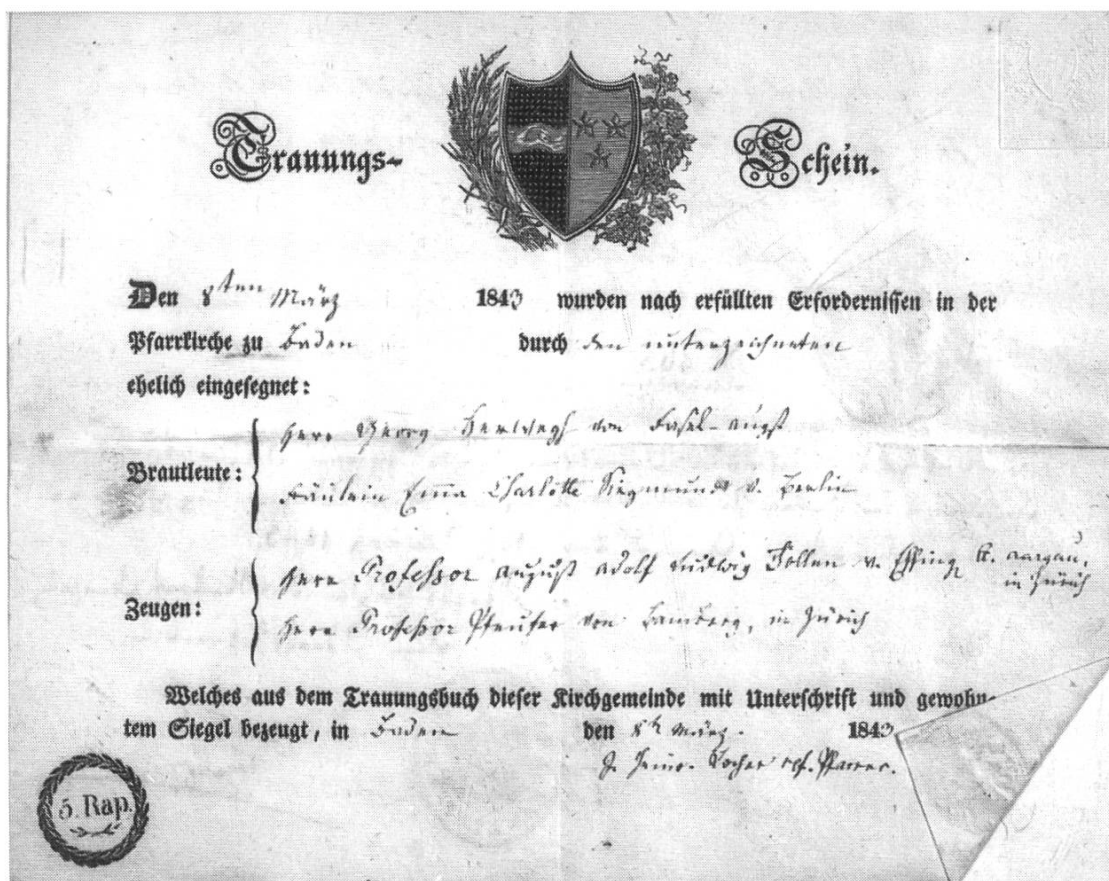 Trauungs- Schein.
Den 8ten März 1843 wurden nach erfüllten Erfordernissen in der
Pfarrkirche zu Baden durch den unterzeichneten
ehelich eingesegnet:
Herr Georg Herwegh von Basel-Augst
Brautleute:
Fräulein Emma Charlotte Siegmund v. Berlin
Herr Professor August Adolf Ludwig Follen v. Effing K. Aargau,
in Zürich
Zeugen:
Herr Professor Pfeufer von Bamberg, in Zürich
Welches aus dem Trauungsbuch dieser Kirchgemeinde mit Unterschrift und gewohn-
tem Siegel bezeugt, in Baden den 8t März. 1843
J. Heinr. Locher ref. Pfarrer.
5. Rap.